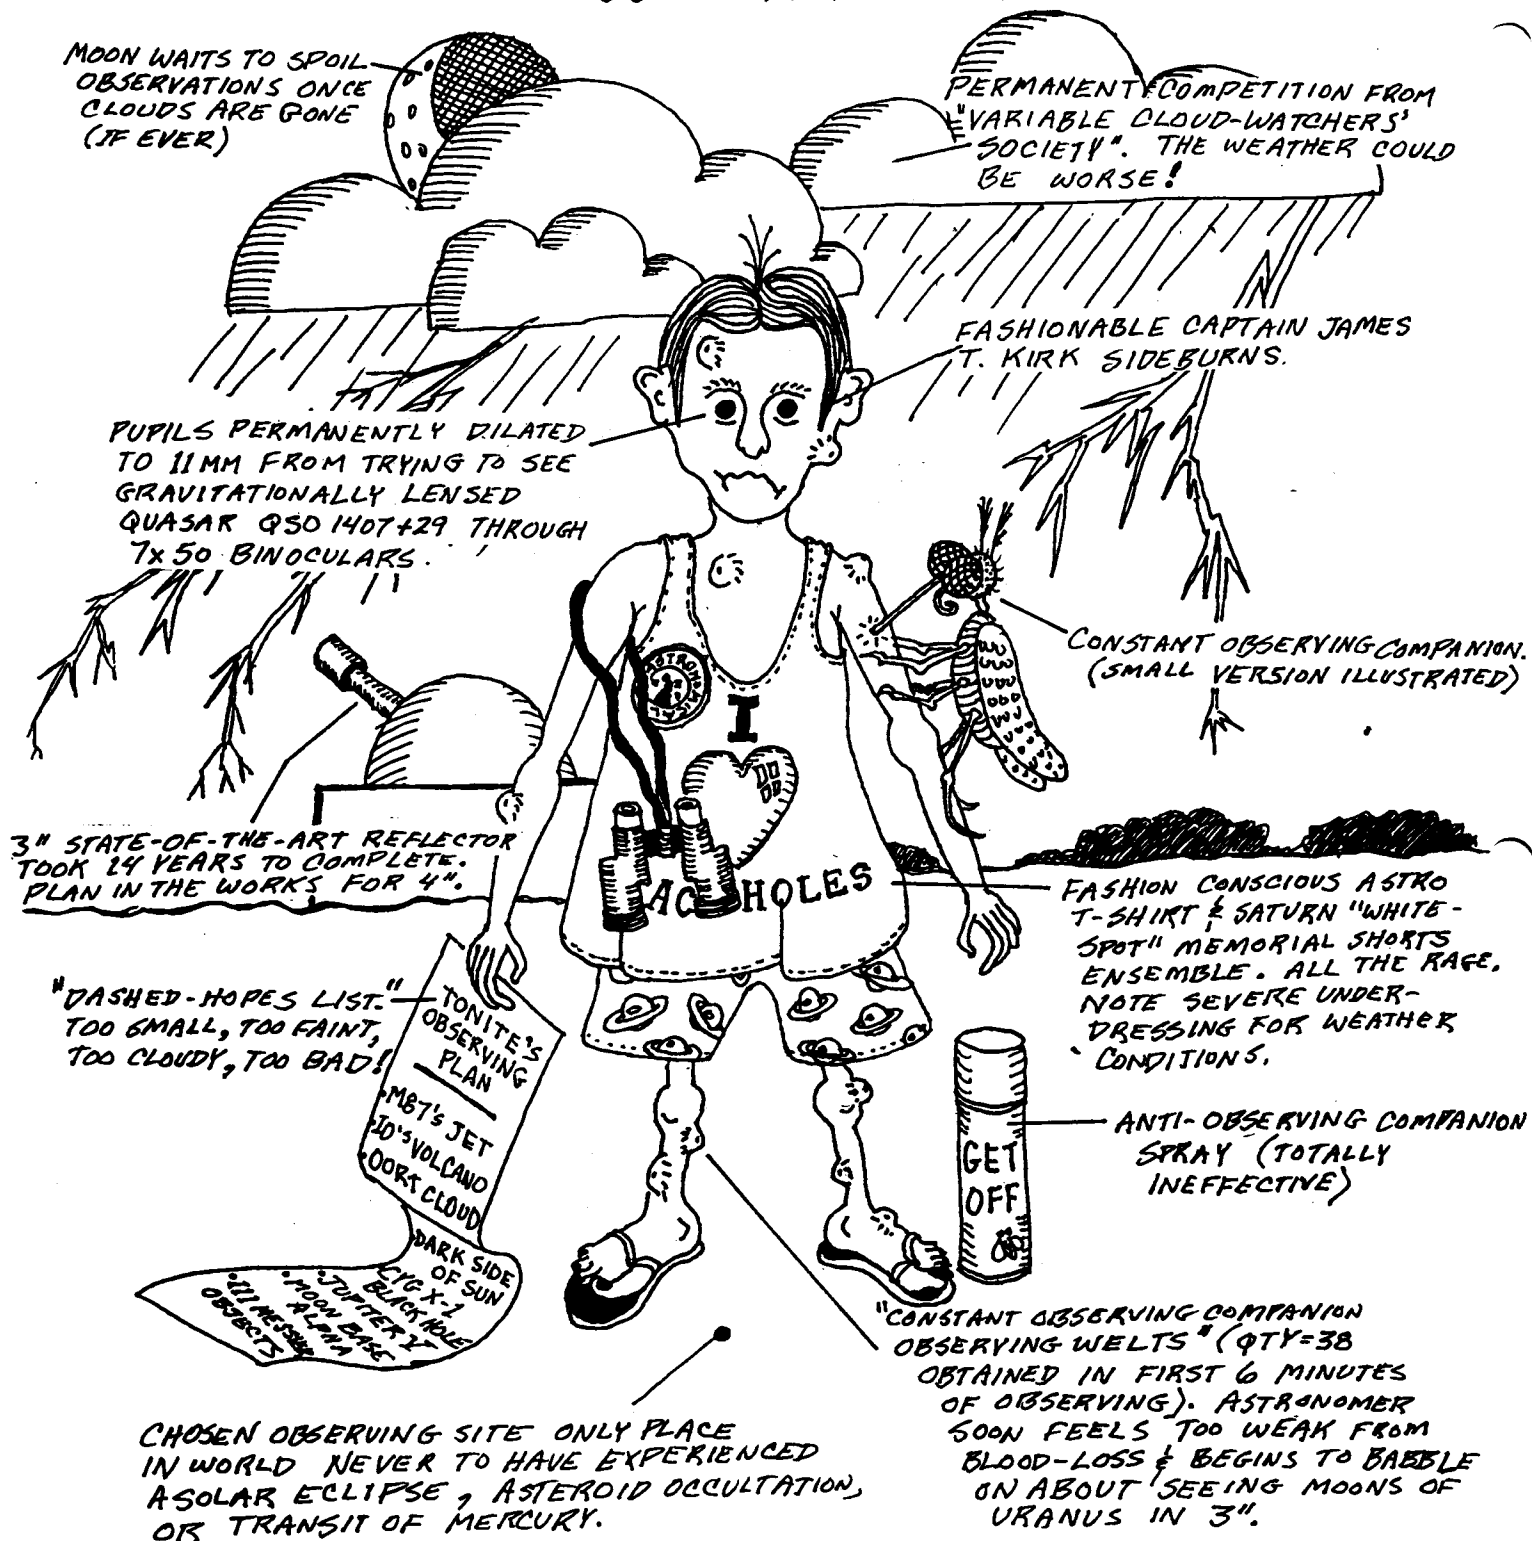 MOON WAITS TO SPOIL
OBSERVATIONS ONCE
CLOUDS ARE GONE
(IF EVER)
PERMANENT COMPETITION FROM
"VARIABLE CLOUD-WATCHERS'
SOCIETY". THE WEATHER COULD
BE WORSE!
FASHIONABLE CAPTAIN JAMES
T. KIRK SIDEBURNS.
PUPILS PERMANENTLY DILATED
TO 11MM FROM TRYING TO SEE
GRAVITATIONALLY LENSED
QUASAR QSO 1407+29 THROUGH
7x50 BINOCULARS.
CONSTANT OBSERVING COMPANION.
(SMALL VERSION ILLUSTRATED)
ASTRONOMICAL
I
3" STATE-OF-THE-ART REFLECTOR
TOOK 14 YEARS TO COMPLETE.
PLAN IN THE WORKS FOR 4".
AC HOLES
FASHION CONSCIOUS ASTRO
T-SHIRT & SATURN "WHITE-
SPOT" MEMORIAL SHORTS
ENSEMBLE. ALL THE RAGE.
NOTE SEVERE UNDER-
DRESSING FOR WEATHER
CONDITIONS.
"DASHED-HOPES LIST."
TOO SMALL, TOO FAINT,
TOO CLOUDY, TOO BAD!
TONITE'S
OBSERVING
PLAN
•M87'S JET
•IO'S VOLCANO
•OORT CLOUD
DARK SIDE
OF SUN
CYG X-1
BLACK HOLE
•JUPITER V
•MOON BASE
ALPHA
•111 MESSIER
OBJECTS
ANTI-OBSERVING COMPANION
SPRAY (TOTALLY
INEFFECTIVE)
GET
OFF
"CONSTANT OBSERVING COMPANION
OBSERVING WELTS" (QTY=38
OBTAINED IN FIRST 6 MINUTES
OF OBSERVING). ASTRONOMER
SOON FEELS TOO WEAK FROM
BLOOD-LOSS & BEGINS TO BABBLE
ON ABOUT SEEING MOONS OF
URANUS IN 3".
CHOSEN OBSERVING SITE ONLY PLACE
IN WORLD NEVER TO HAVE EXPERIENCED
A SOLAR ECLIPSE, ASTEROID OCCULTATION,
OR TRANSIT OF MERCURY.